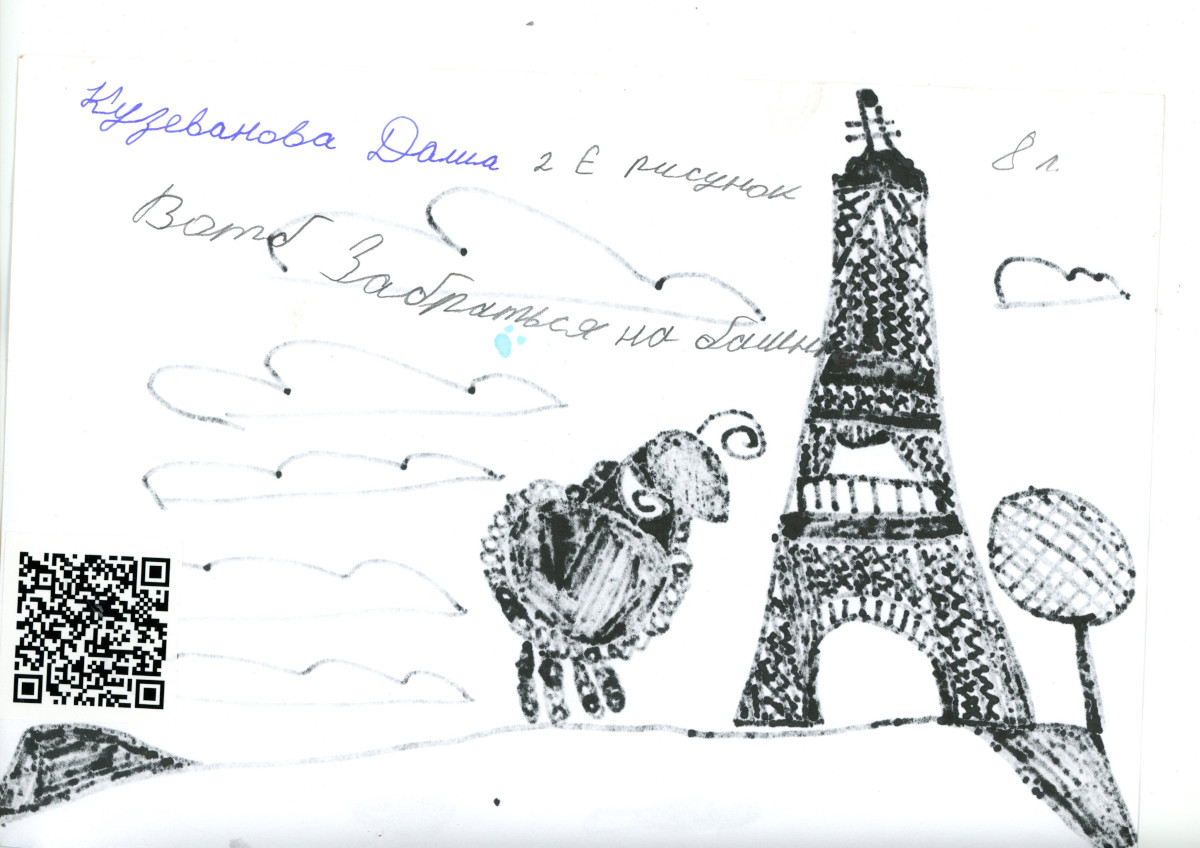 Кузеванова Даша 2 Е рисунок 8 л.
Вотб Забраться на башню